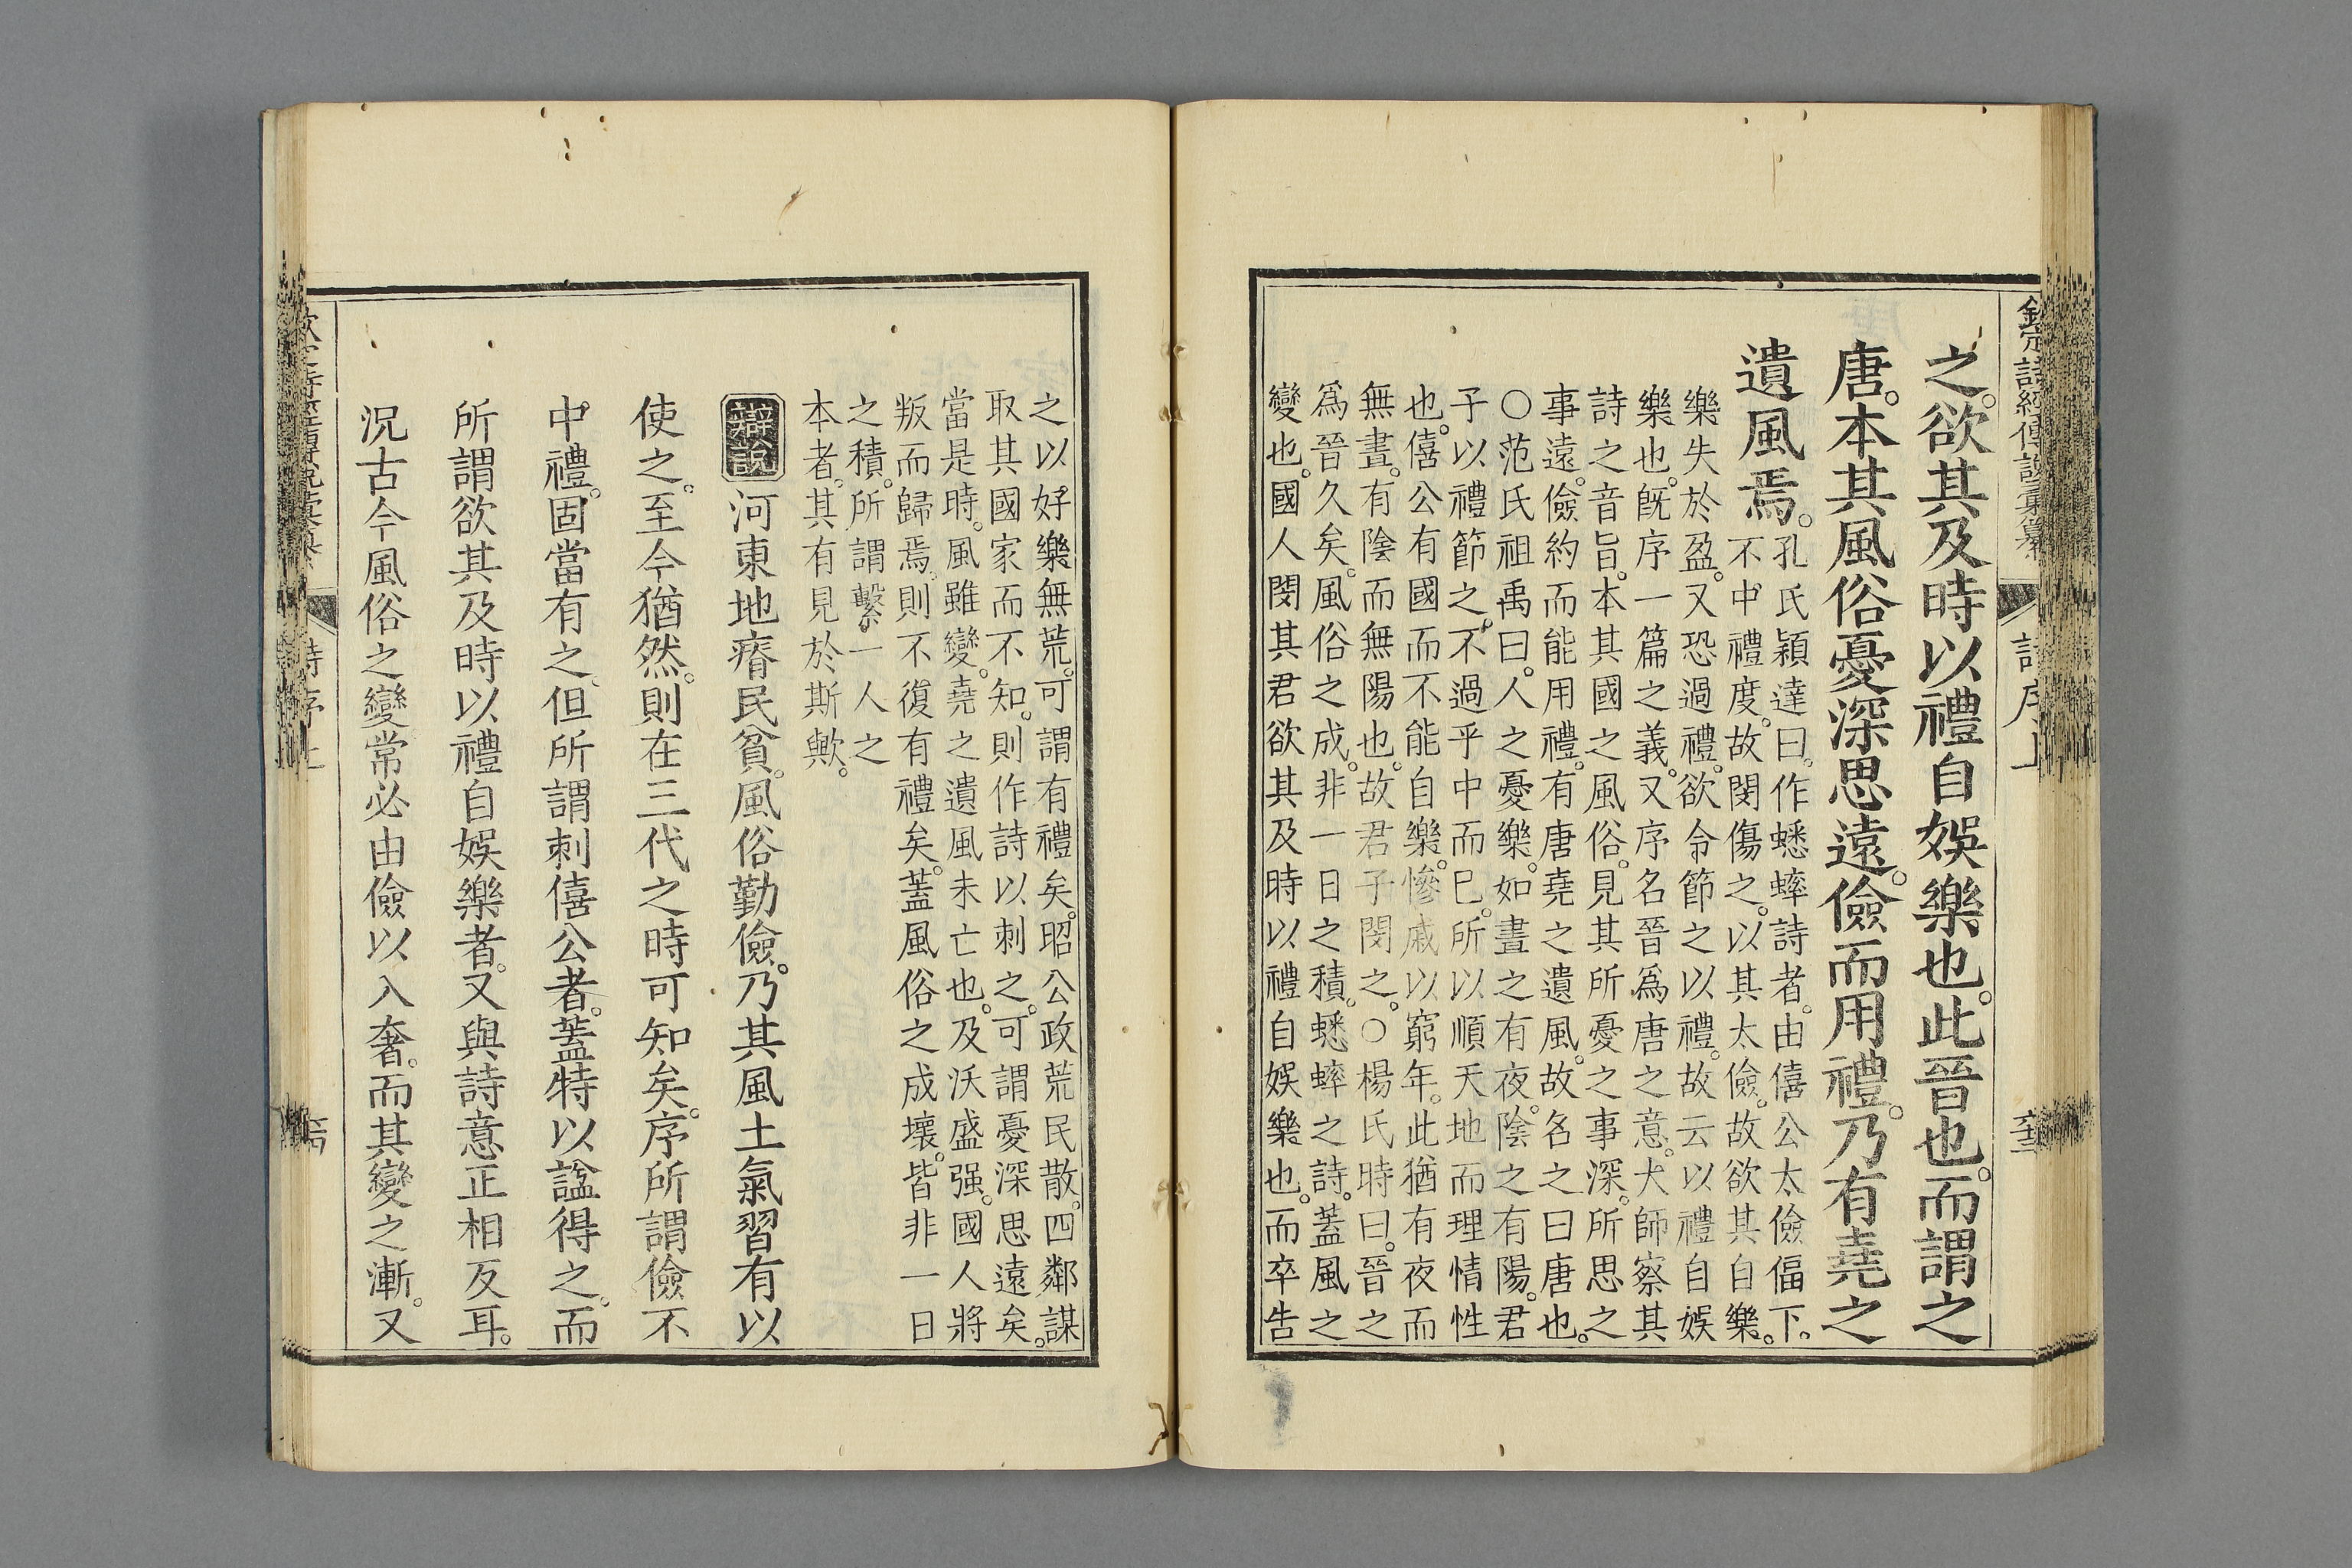 之。欲其及時以禮自娛樂也。此晉也。而謂之
唐。本其風俗憂深思遠。儉而用禮。乃有堯之
遺風焉。
孔氏穎達曰。作蟋蟀詩者。由僖公太儉偪下。
不中禮度。故閔傷之。以其太儉。故欲其自樂。
樂失於盈。又恐過禮。欲令節之以禮。故云以禮自娛
樂也。旣序一篇之義。又序名晉爲唐之意。犬師察其
詩之音旨。本其國之風俗。見其所憂之事深。所思之
事遠。儉約而能用禮。有唐堯之遺風。故名之曰唐也。
○范氏祖禹曰。人之憂樂。如晝之有夜。陰之有陽。君
子以禮節之。不過乎中而已。所以順天地而理情性
也。僖公有國而不能自樂。慘戚以窮年。此猶有夜而
無晝。有陰而無陽也。故君子閔之。○楊氏時曰。晉之
爲晉久矣。風俗之成。非一日之積。蟋蟀之詩。蓋風之
變也。國人閔其君欲其及時以禮自娛樂也。而卒告
之以好樂無荒。可謂有禮矣。昭公政荒民散。四鄰謀
取其國家而不知。則作詩以刺之。可謂憂深思遠矣。
當是時。風雖變。堯之遺風未亡也。及沃盛强。國人將
叛而歸焉。則不復有禮矣。蓋風俗之成壞。皆非一日
之積。所謂繫一人之
本者。其有見於斯歟。
辯說 河東地瘠民貧。風俗勤儉。乃其風土氣習有以
使之。至今猶然。則在三代之時可知矣。序所謂儉不
中禮。固當有之。但所謂刺僖公者。蓋特以諡得之。而
所謂欲其及時以禮自娛樂者。又與詩意正相反耳。
況古今風俗之變常必由儉以入奢。而其變之漸。又